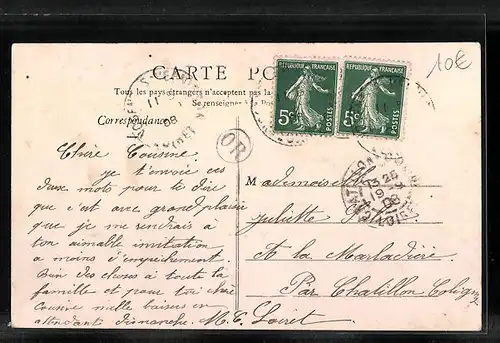 10€
CARTE PO
Tous les pays étrangers n'acceptent pas la
Se renseigner à la Po
RÉPUBLIQUE FRANÇAISE
5c
POSTES
RÉPUBLIQUE FRANÇAISE
5c
POSTES
Correspondance
11
08
LOIRET
OR
Chère Cousine
Je t'envoie ces
deux mots pour te dire
que c'est avec grand plaisir
que je me rendrais à
ton aimable invitation
à moins d'empêchement.
Bien des choses à toute ta
famille et pour toi chère
Cousine mille baisers en
attendant dimanche. M. C. Loiret
Mademoiselle
Juliette
A la Marladière
Par Chatillon Coligny
CHATILLON
26
08
LOIRET